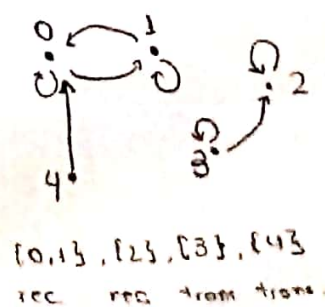 0 1
2
3
4
{0,1}, {2}, {3}, {4}
rec rec tran trans